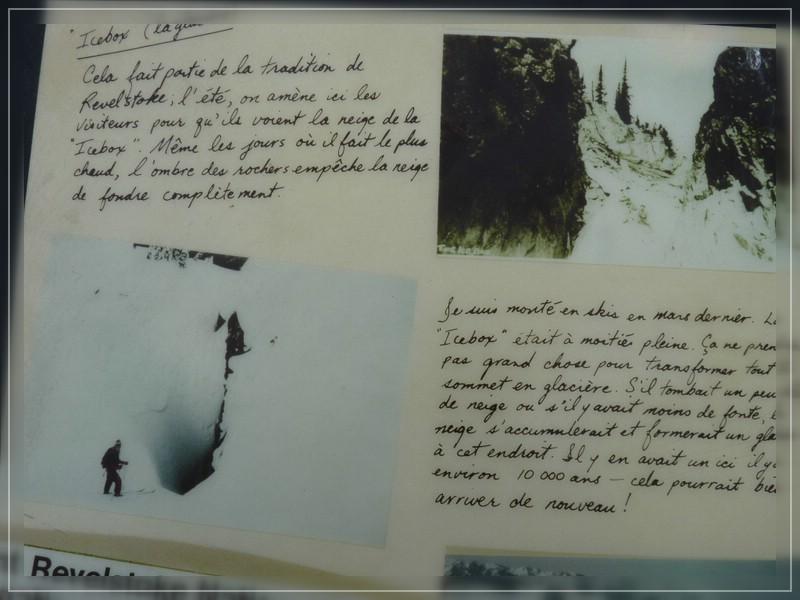 "Icebox (la
Cela fait partie de la tradition de
Revelstoke; l'été, on amène ici les
visiteurs pour qu'ils voient la neige de la
"Icebox". Même les jours où il fait le plus
chaud, l'ombre des rochers empêche la neige
de fondre complètement.
Je suis monté en skis en mars dernier. L
"Icebox" était à moitiés pleine. Ça ne pren
pas grand chose pour transformer tout
sommet en glacière. S'il tombait un peu
de neige ou s'il y avait moins de fonte,
neige s'accumulerait et formerait un gla
à cet endroit. Il y en avait un ici il y
environ 10 000 ans – cela pourrait bie
arriver de nouveau!
Revelst